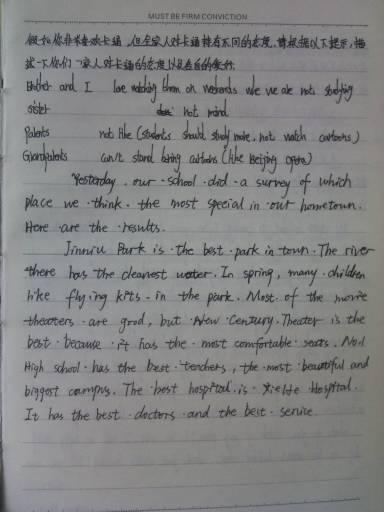 MUST BE FIRM CONVICTION
假如你非常喜欢卡通,但全家人对卡通持有不同的态度,请根据以下提示,描
述一下你们一家人对卡通的态度以及各自的条件
Brother and I love watching them on weekends while we are not studying
sister not mind
Parents not like (students should study more, not watch cartoons)
Grandparents can't stand boring cartoons (like Beijing opera)
Yesterday, our school did a survey of which
place we think the most special in our hometown.
Here are the results.
Jinniu Park is the best park in town. The river
there has the cleanest water. In spring, many children
like flying kits in the park. Most of the movie
theaters are good, but New Century Theater is the
best because it has the most comfortable seats. No.1
High school has the best teachers, the most beautiful and
biggest campus. The best hospital is Xiehe Hospital.
It has the best doctors and the best service